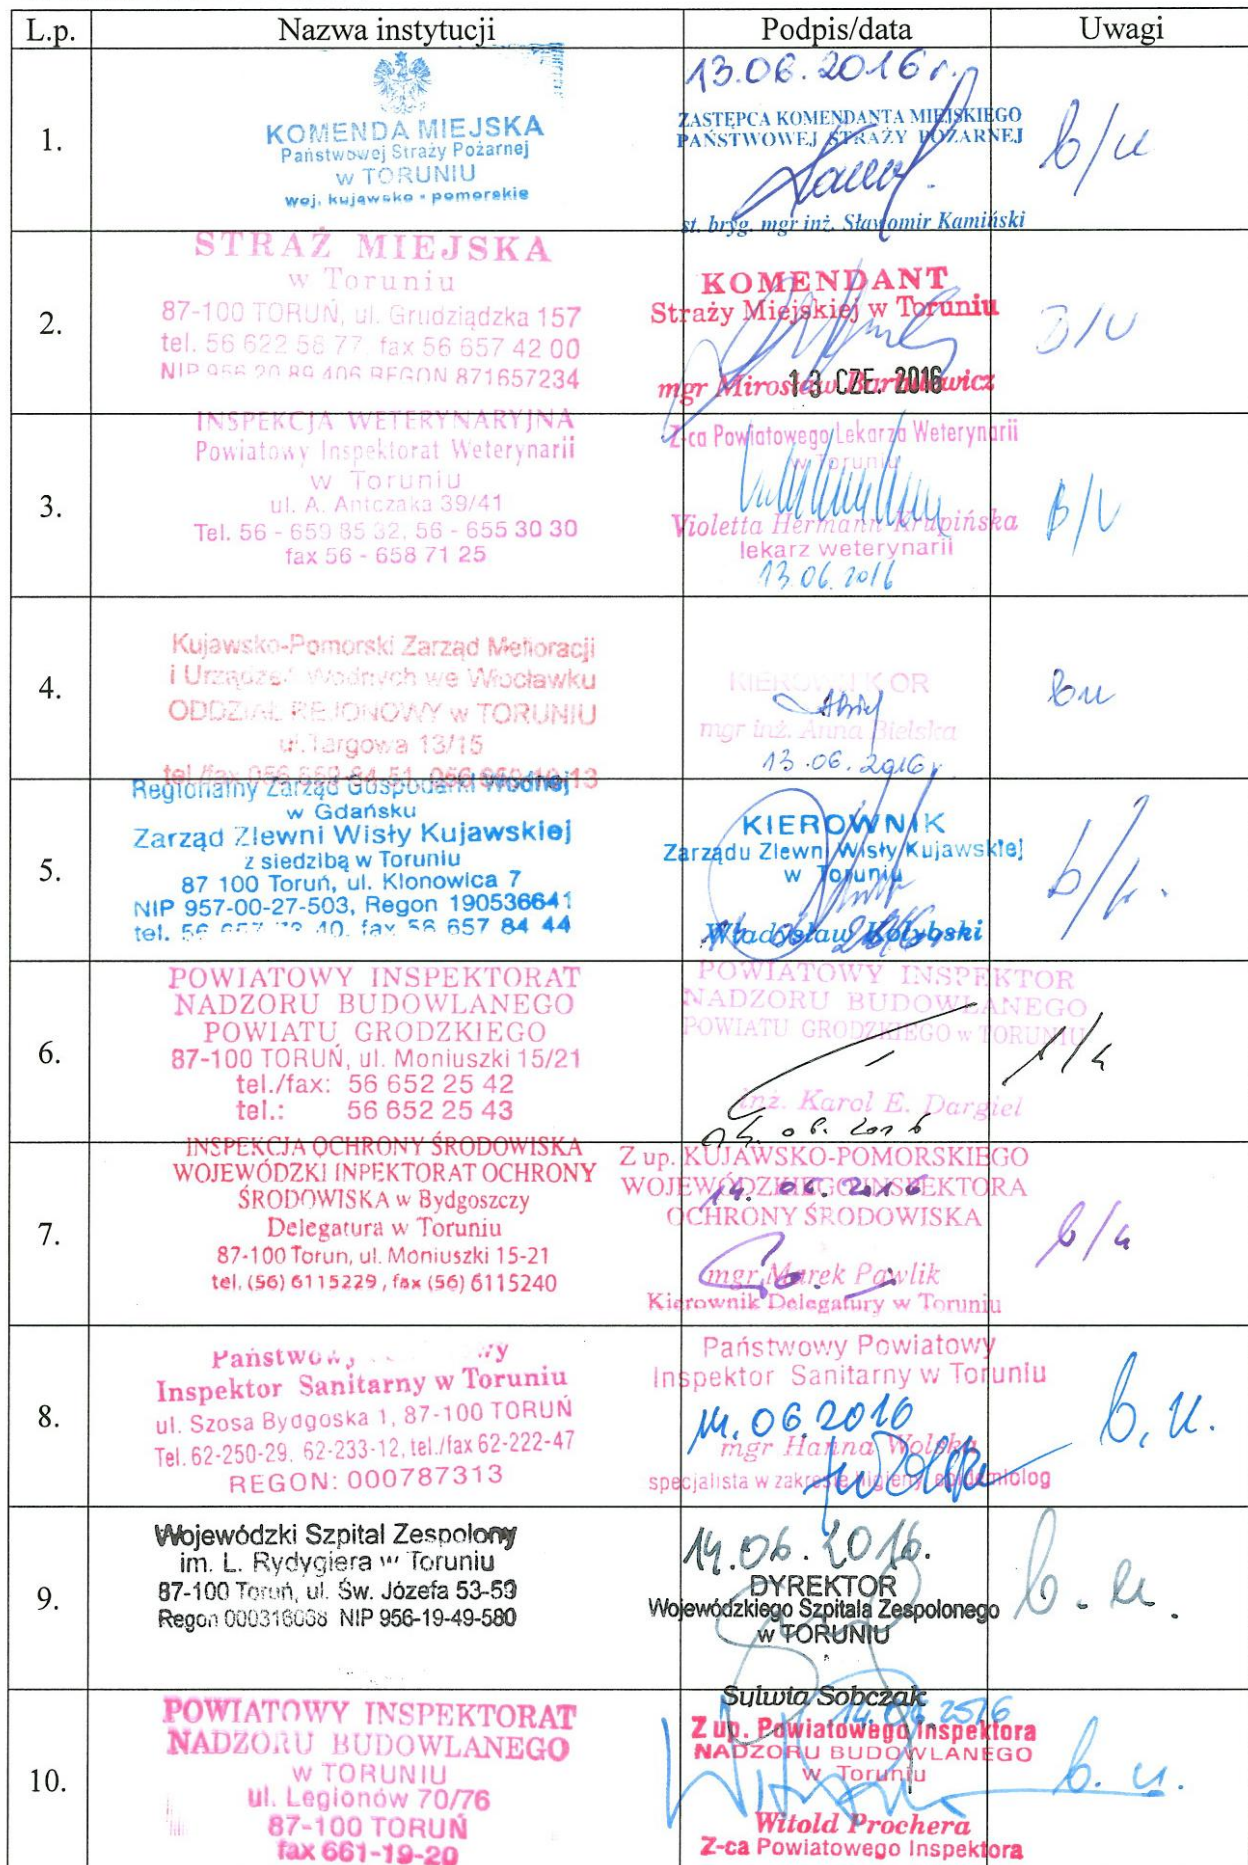 L.p. Nazwa instytucji Podpis/data Uwagi
1.
KOMENDA MIEJSKA
Państwowej Straży Pożarnej
w TORUNIU
woj. kujawsko - pomorskie
13.06.2016 r.
ZASTĘPCA KOMENDANTA MIEJSKIEGO
PAŃSTWOWEJ STRAŻY POŻARNEJ
st. bryg. mgr inż. Sławomir Kamiński
b/u
2.
STRAŻ MIEJSKA
w Toruniu
87-100 TORUŃ, ul. Grudziądzka 157
tel. 56 622 58 77, fax 56 657 42 00
NIP 956 20 89 406 REGON 871657234
KOMENDANT
Straży Miejskiej w Toruniu
mgr Mirosław
13 CZE. 2016
B/U
3.
INSPEKCJA WETERYNARYJNA
Powiatowy Inspektorat Weterynarii
w Toruniu
ul. A. Antczaka 39/41
Tel. 56 - 659 85 32, 56 - 655 30 30
fax 56 - 658 71 25
Z-ca Powiatowego Lekarza Weterynarii
w Toruniu
Violetta Hermann-Krupińska
lekarz weterynarii
13.06.2016
B/U
4.
Kujawsko-Pomorski Zarząd Melioracji
i Urządzeń Wodnych we Włocławku
ODDZIAŁ REJONOWY w TORUNIU
ul. Targowa 13/15
tel./fax
KIEROWNIK OR
mgr inż. Anna Bielska
13.06.2016 r
bu
5.
Regionalny Zarząd Gospodarki Wodnej
w Gdańsku
Zarząd Zlewni Wisły Kujawskiej
z siedzibą w Toruniu
87 100 Toruń, ul. Klonowica 7
NIP 957-00-27-503, Regon 190536641
tel. 56 40, fax 56 657 84 44
KIEROWNIK
Zarządu Zlewni Wisły Kujawskiej
w Toruniu
Władysław Kołybski
b/u.
6.
POWIATOWY INSPEKTORAT
NADZORU BUDOWLANEGO
POWIATU GRODZKIEGO
87-100 TORUŃ, ul. Moniuszki 15/21
tel./fax: 56 652 25 42
tel.: 56 652 25 43
POWIATOWY INSPEKTOR
NADZORU BUDOWLANEGO
POWIATU GRODZKIEGO w TORUNIU
inż. Karol E. Dargiel
06. 2016
7.
INSPEKCJA OCHRONY ŚRODOWISKA
WOJEWÓDZKI INPEKTORAT OCHRONY
ŚRODOWISKA w Bydgoszczy
Delegatura w Toruniu
87-100 Torun, ul. Moniuszki 15-21
tel. (56) 6115229, fax (56) 6115240
Z up. KUJAWSKO-POMORSKIEGO
WOJEWÓDZKIEGO INSPEKTORA
OCHRONY ŚRODOWISKA
14. 06. 2016
mgr Marek Pawlik
Kierownik Delegatury w Toruniu
b/u
8.
Państwowy
Inspektor Sanitarny w Toruniu
ul. Szosa Bydgoska 1, 87-100 TORUŃ
Tel. 62-250-29, 62-233-12, tel./fax 62-222-47
REGON: 000787313
Państwowy Powiatowy
Inspektor Sanitarny w Toruniu
14.06.2016
mgr Hanna Wolska
specjalista w zakresie higieny, epidemiolog
b.u.
9.
Wojewódzki Szpital Zespolony
im. L. Rydygiera w Toruniu
87-100 Toruń, ul. Św. Józefa 53-59
Regon 000316068 NIP 956-19-49-580
14.06.2016.
DYREKTOR
Wojewódzkiego Szpitala Zespolonego
w TORUNIU
Sylwia Sobczak
b.u.
10.
POWIATOWY INSPEKTORAT
NADZORU BUDOWLANEGO
w TORUNIU
ul. Legionów 70/76
87-100 TORUŃ
fax 661-19-20
14.06.2016
Z up. Powiatowego Inspektora
NADZORU BUDOWLANEGO
w Toruniu
Witold Prochera
Z-ca Powiatowego Inspektora
b.u.